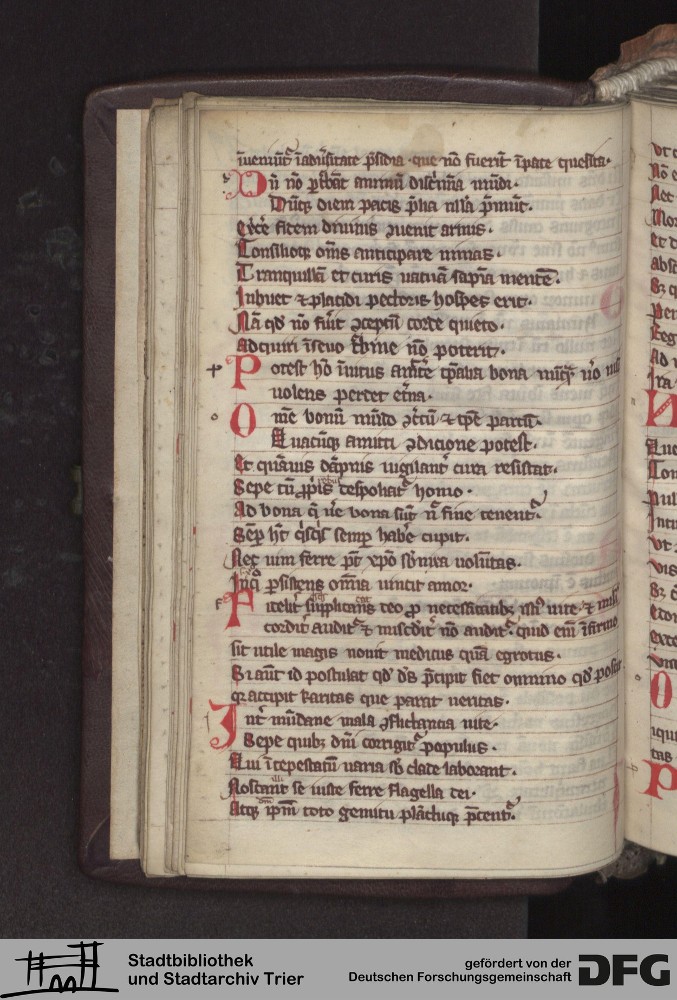 īueniūt᷑ īadűsitate p̄sidia · que nō fuerīt īpace quesita ·
Dū nō ꝑt͛bāt animū disc͛mīa mūdi ·
Dūqꝫ diem pacis p̄lia nlla p̄mūt ·
fitem diuinis ꝯuenit armis ·
Consilioqꝫ om̄s anticipare minas ·
Tranquillā et curis uacuā sapīa mentē ·
Inbuet ⁊ placidi pectoris hospes erit ·
Nā qd̓ nō fűit ꝯceptū corde quieto ·
Adquiri īseuo t͛bine nō poterit ·
Potest hō īuitus amit͛e tp̄alia bona nūqͣ u͛o nisi
uolens perdet et͛na ·
Om̄e bonū mūdo ꝯc͛tū ⁊ tp̄e partū ·
Quacūqꝫ amitti ꝯdicione potest ·
Et quāuis dāpnis uigilant᷑ cura resistat ·
Sepe cū ꝓpͥis despoliat᷑ homo ·
Ad bona q̄ u͛e bona sūt nͣ fine tenent᷑ ·
Semꝑ ht̄ qͥsqͥs semꝑ hab͛e cupit ·
Nec uim ferre pt̄ xp̄o sb̓nixa uolūtas ·
In qͣ ꝑsistens omīa uincit amor ·
Fidelit͛ supplicans deo ꝓ necessitatibꝫ istiꝰ uite · ⁊ miseri
cordit͛ audit᷑ ⁊ misc͛dit͛ nō audit᷑ · quid eni ī̄firmo
sit utile magis nouit medicus quā egrotus ·
Si aūt id postulat qd̓ dꝰs p̄cipit fiet omnino qd̓
qꝛ accipit karitas que parat ueritas ·
Int͛ mūdane mala ꝯflictancia uite ·
Sepe quibꝫ dn̄i corrigit᷑ populus ·
Qui ī tēpestatū uaria sb̓ clade laborant ·
Noscant se iuste ferre flagella dei ·
Atqꝫ ip̄m toto gemitu plāctuqꝫ p̄cent᷑ ·
Stadtbibliothek
und Stadtarchiv Trier
gefördert von der
Deutschen Forschungsgemeinschaft
DFG